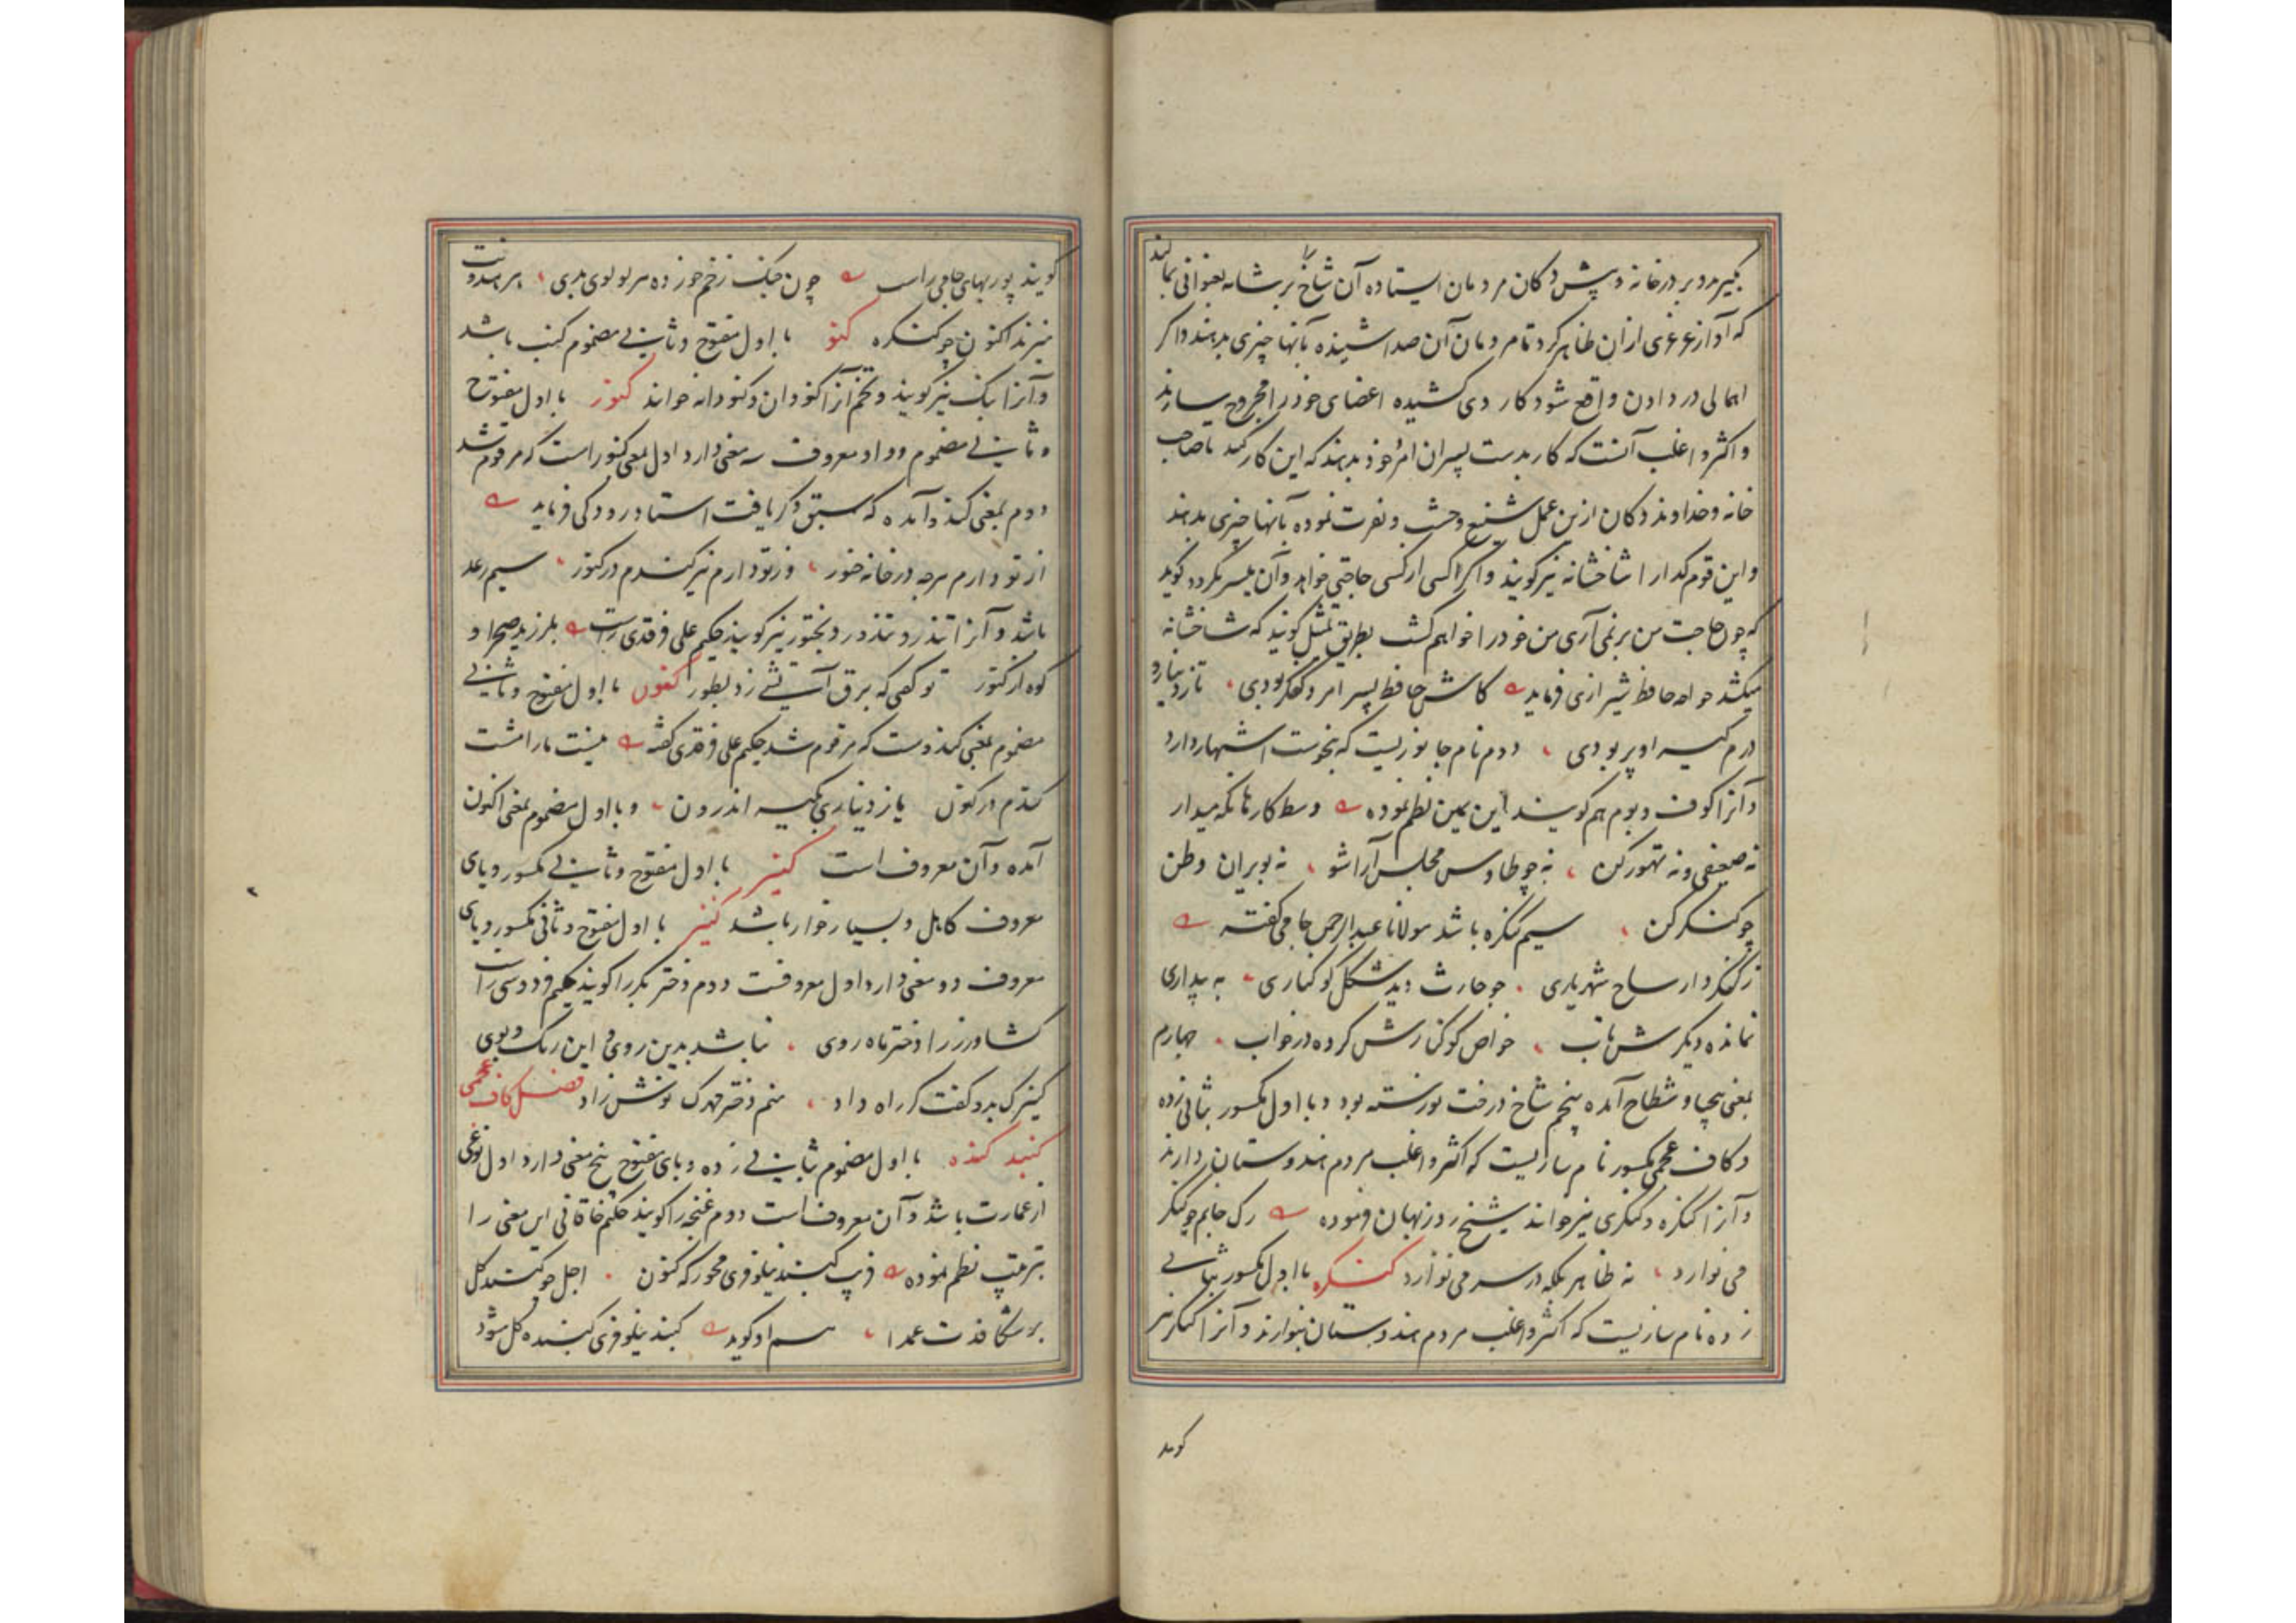 بگیرند و بر در خانه و پیش دکان مردمان ایستاده آن شاخ را بر شانه بعنوانی بمالند
که آواز غرغری ازان ظاهر گردد تا مردمان آن صدا شنیده بآنها چیزی بدهند و اگر
اهمالی در دادن واقع شود کاردی کشیده اعضای خود را مجروح سازند
و اکثر و اغلب آنست که کارد بدست پسران امرد خود بدهند که این کار کند تا صاحب
خانه و خداوند دکان ازین عمل شنیع وحشت و نفرت نموده بآنها چیزی بدهند
و این قوم گدا را شاخشانه نیز گویند و اگر کسی از کسی حاجتی خواهد و آن میسر نگردد گوید
که چون حاجت من بر نمی‌آری من خود را خواهم کشت بطریق تمثیل گویند که شاخشانه
میکشد خواجه حافظ شیرازی فرماید کاش حافظ پسر امرد کنگر بودی تا زر دینار و
درم کیسه او پر بودی دوم نام جانوریست که بنحوست اشتهار دارد
و آنرا کوف و بوم هم گویند ابن یمین نظم نموده وسط کارها نگه میدار
نه ضعیفی و نه تهور کن نه چو طاوس مجلس آرا شو نه بویران وطن
چو کنگر کن سیم کنگره باشد مولانا عبدالرحمن جامی گفته
ز کنگردار ساح شهریاری چو حارث دید شکل کوکناری به بیداری
نمانده دیگرش تاب خواص کوکنارش کرده در خواب چهارم
بمعنی بیحیا و شطاح آمده پنجم شاخ درخت نورسته بود و با اول مکسور بثانی زده
و کاف عجمی مکسور نام سازیست که اکثر و اغلب مردم هندوستان دارند
و آنرا کنگره و کنگری نیز خوانند شیخ روزبهان فرموده رگ جانم چو کنگر
می نوازد نه ظاهر بلکه در سر می نوازد کنگره با اول مکسور بثانی
زده نام سازیست که اکثر و اغلب مردم هندوستان بنوازند و آنرا کنگر نیز
گویند
گویند پوربهای جامی راست چون چنگ زخم خورده سر لولوی بدی بر هندوت
میزند اکنون چو کنگره کنو با اول مفتوح و ثانی مضموم کنب باشد
و آنرا بنگ نیز گویند و تخم آنرا کنودان و کنودانه خوانند کنور با اول مفتوح
و ثانی مضموم و واو معروف سه معنی دارد اول بمعنی کنور است که مرقوم شد
دوم بمعنی کندو آمده که سبق ذکر یافت استاد رودکی فرماید
از تو دارم هرچه در خانه خنور وز تو دارم نیز گندم در کنور سیم رعد
باشد و آنرا تندر و تندور و بختور نیز گویند حکیم علی فرقدی راست بلرزید صحرا و
کوه از کنور تو گفی که برق آتشی زد بطور کنون با اول مفتوح و ثانی
مضموم بمعنی کندوست که مرقوم شد حکیم علی فرقدی گفته نیست ما را مشت
گندم در کنون یا زر دیناری بکیسه اندرون و با اول مضموم بمعنی اکنون
آمده و آن معروف است کنیر با اول مفتوح و ثانی مکسور و یای
معروف کاهل و بسیار خوار باشد کنیز با اول مفتوح و ثانی مکسور و یای
معروف دو معنی دارد اول معروفست دوم دختر بکر را گویند حکیم فردوسی راست
کشاورز را دختر ماه روی نباشد بدین روی و این رنگ و بوی
کنیزک بدو گفت کز راه داد منم دختر مهرک نوش‌زاد فصل کاف عجمی
گنبد گنبده با اول مضموم بثانی زده و بای مفتوح پنج معنی دارد اول نوعی
از عمارت باشد و آن معروف است دوم غنچه را گویند حکیم خاقانی این معنی را
بترتیب نظم نموده فریب گنبد نیلوفری مخور که کنون اجل چو گنبد گل
برشکافدت عمدا هم او گوید گنبد نیلوفری گنبده گل شود